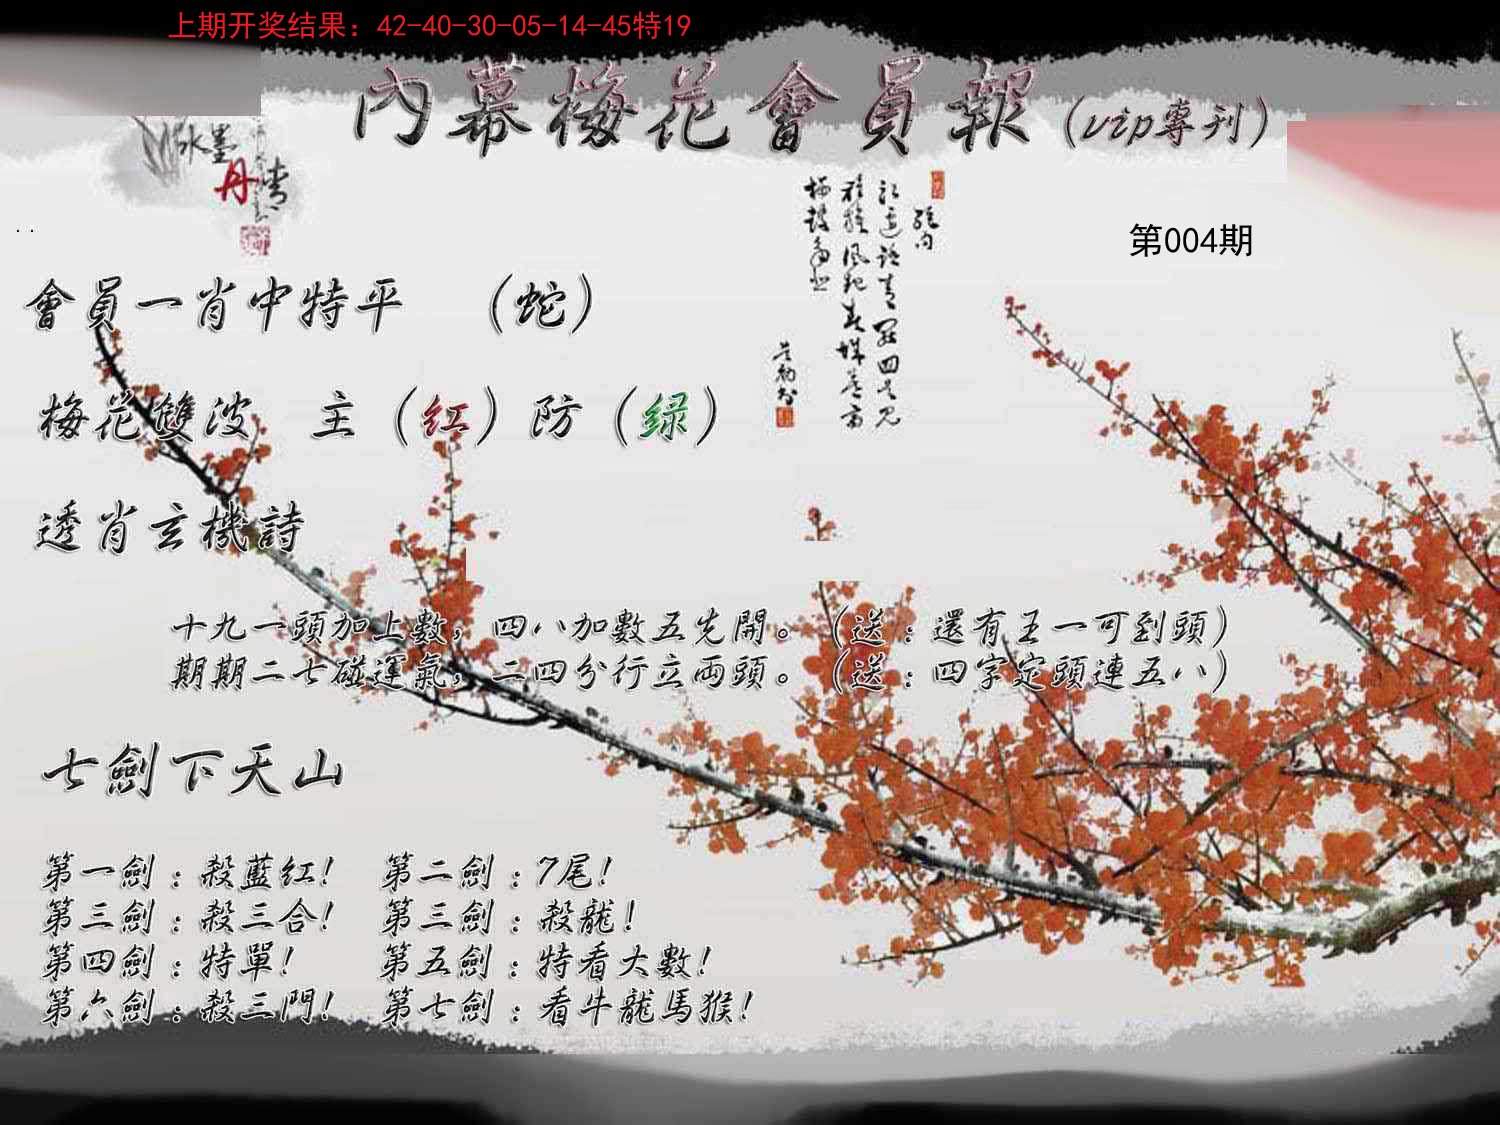 上期开奖结果：42-40-30-05-14-45特19
內幕梅花會員報（vip專刊）
水墨
丹
青
第004期
會員一肖中特平 （蛇）
梅花雙波 主（红）防（绿）
透肖玄機詩
十九一頭加上數，四八加數五先開。（送：還有王一可到頭）
期期二七碰運氣，二四分行立兩頭。（送：四字定頭連五八）
七劍下天山
第一劍：殺藍红！ 第二劍：7尾！
第三劍：殺三合！ 第三劍：殺龍！
第四劍：特單！ 第五劍：特看大數！
第六劍：殺三門！ 第七劍：看牛龍馬猴！